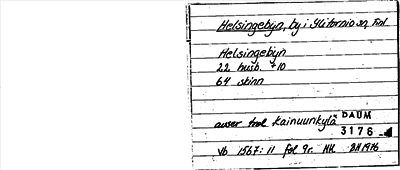 Helsingebyn, by i Ylitornio sn, Finl.
Helsingebyn
22 husb. +10
64 skinn
avser trol. Kainuunkylä
DAUM
3176
Vb 1567:11 fol 9r. MH. 1976